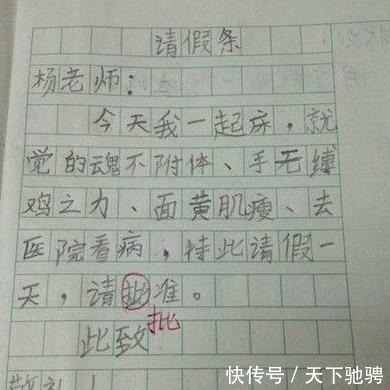 请假条
杨老师:
今天我一起床,就
觉的魂不附体、手无缚
鸡之力、面黄肌瘦、去
医院看病,特此请假一
天,请批准。
批
此致
敬礼!
快传号/天下驰骋